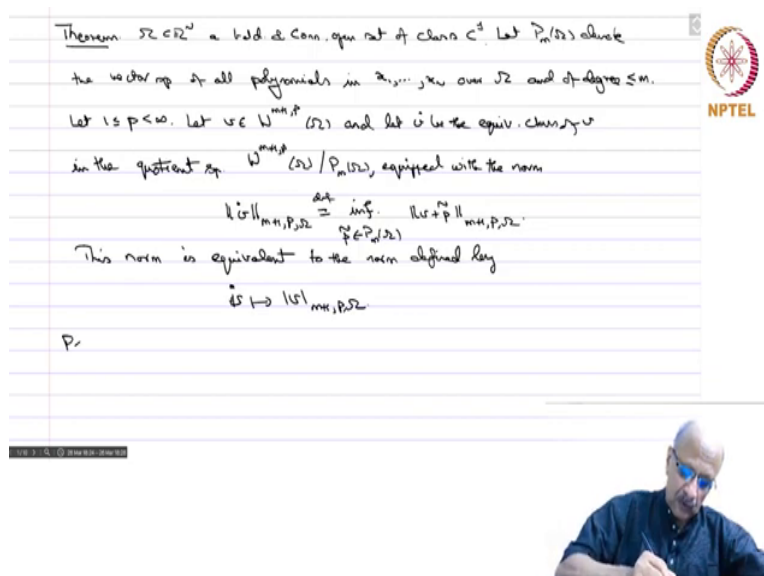 Theorem. Ω ⊂ ℝᴺ a bdd & conn. open set of class C¹. Let Pₘ(Ω) denote
the vector sp of all polynomials in x₁,…,x_N over Ω and of degree ≤ m.
Let 1 ≤ p < ∞. Let v ∈ W^{m+1,p}(Ω) and let v̇ be the equiv. class of v
in the quotient sp. W^{m+1,p}(Ω)/Pₘ(Ω), equipped with the norm
‖v̇‖_{m+1,p,Ω} def= inf_{p̃∈Pₘ(Ω)} ‖v+p̃‖_{m+1,p,Ω}.
This norm is equivalent to the norm defined by
v̇ ↦ |v|_{m+1,p,Ω}.
P
NPTEL